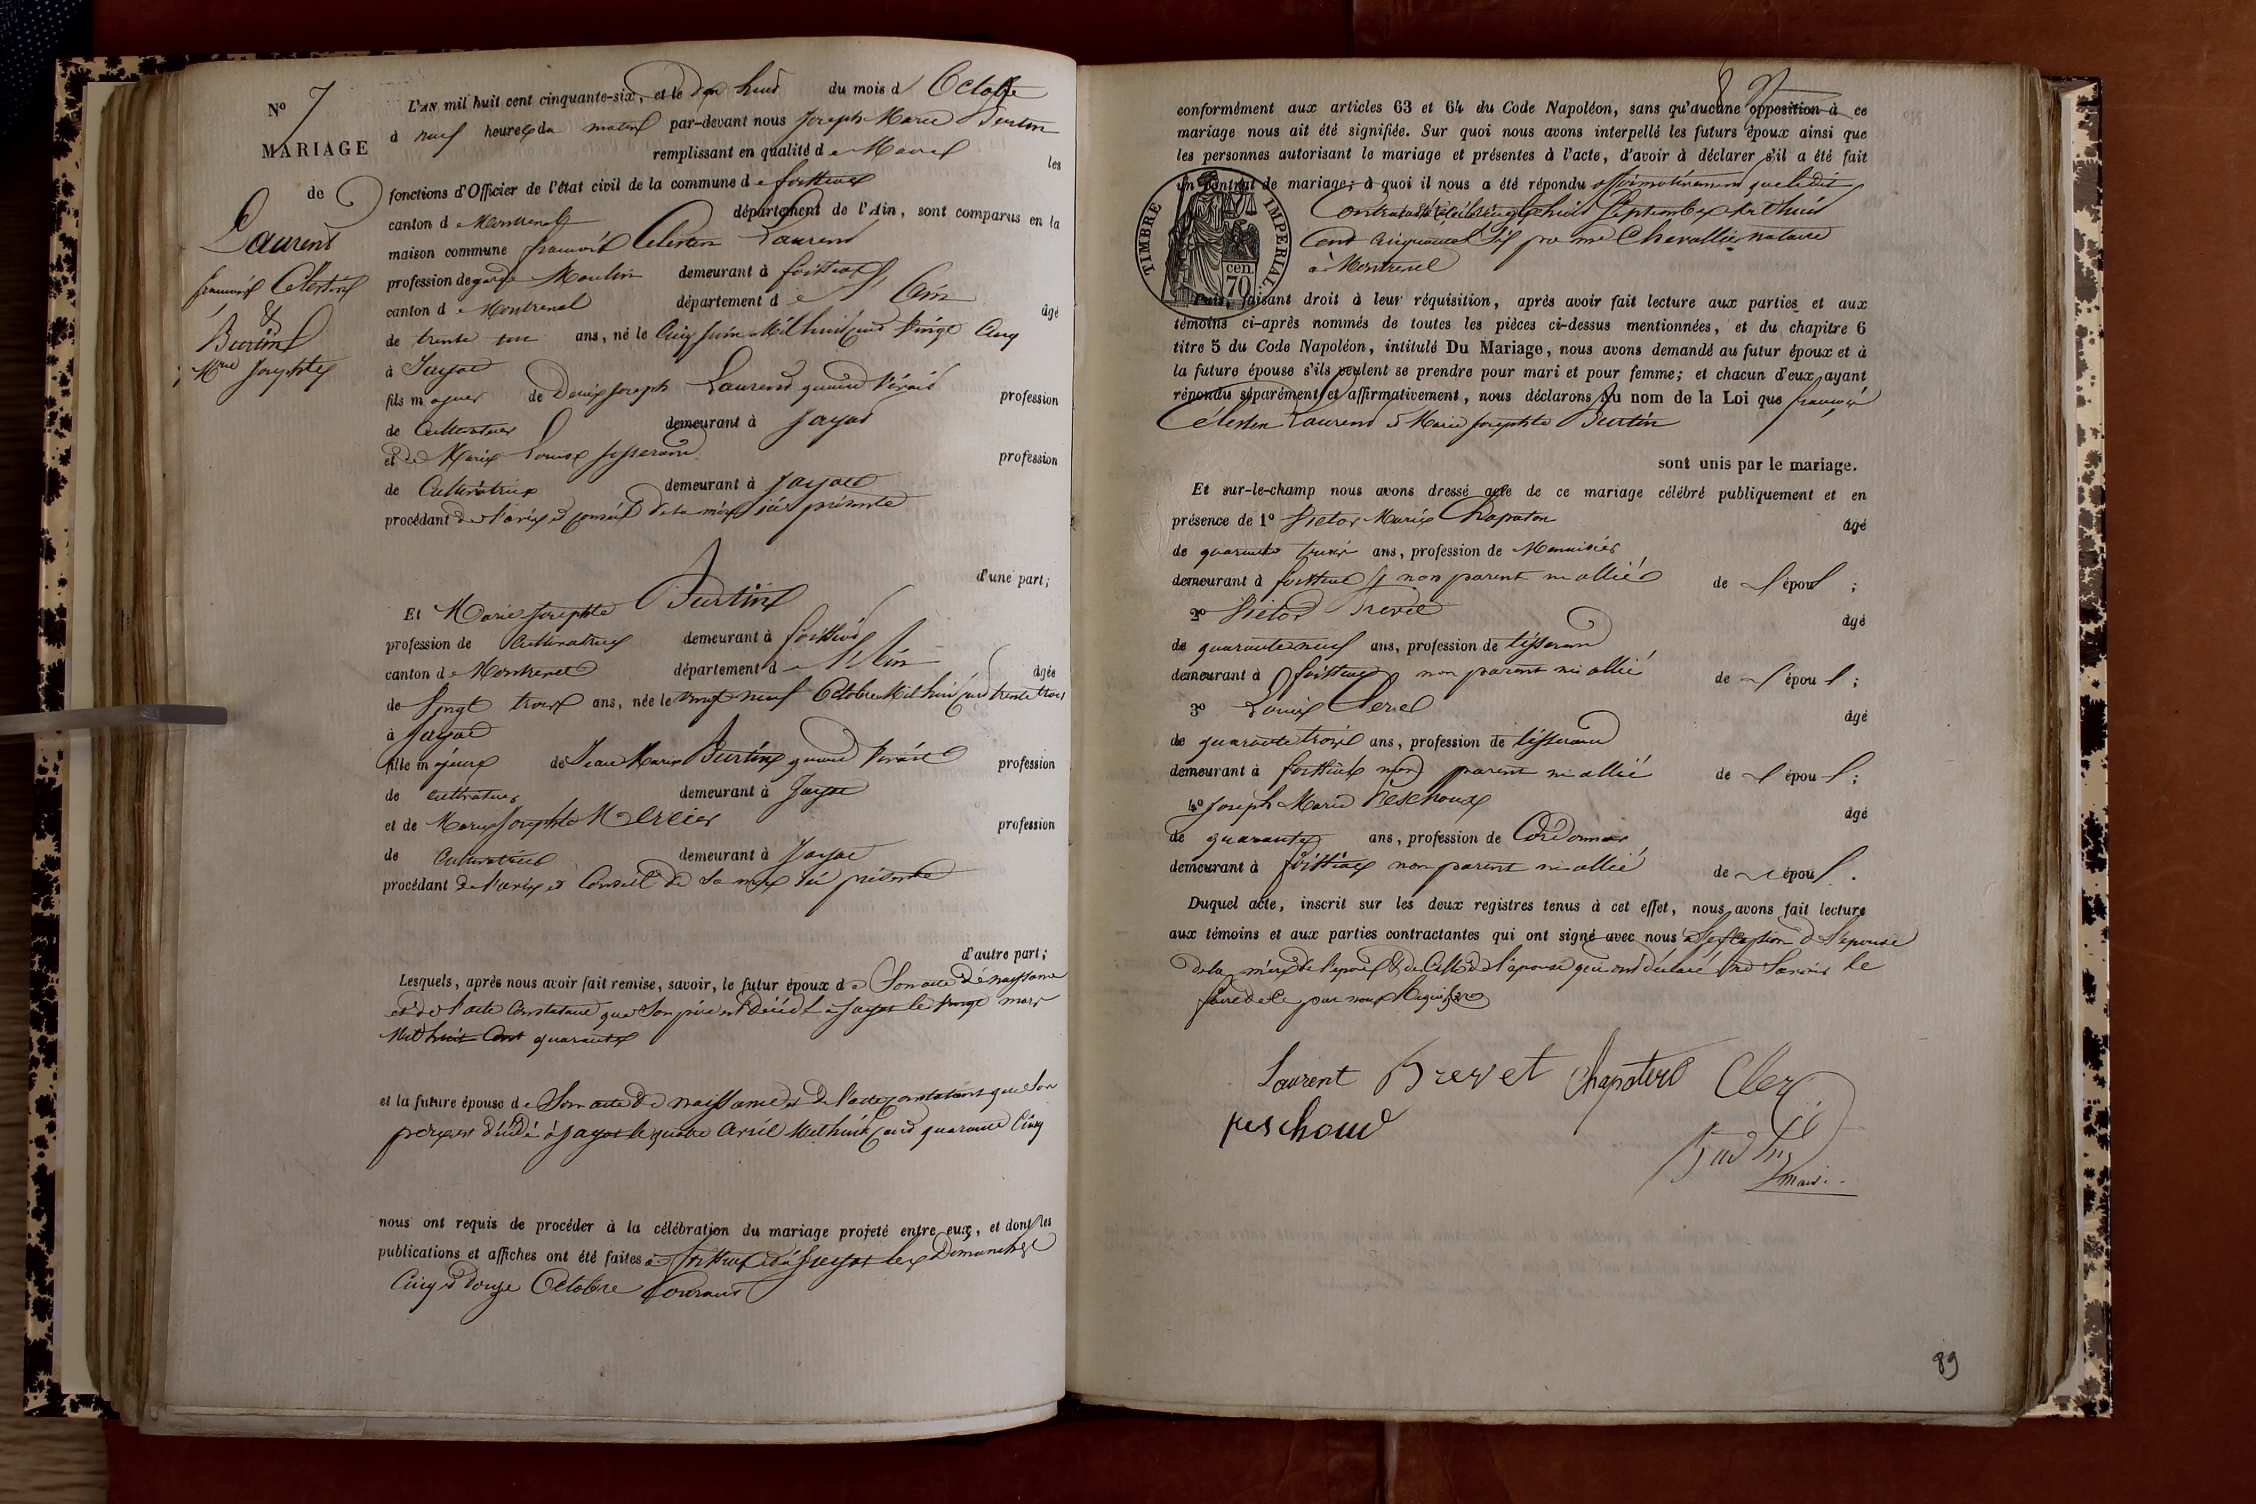 Nº 7
MARIAGE
de
Laurent
françois Célestin
&
Burtin
Mie Josephte
L'AN mil huit cent cinquante-six, et le dix huit du mois d Octobre
à neuf heures du matin par-devant nous Joseph Marie Burtin
remplissant en qualité de Maire les
fonctions d'Officier de l'état civil de la commune de foissiat
canton de Montrevel département de l'Ain, sont comparus en la
maison commune françois Célestin Laurent
profession de garçon Moulin demeurant à foissiat
canton de Montrevel département de l'Ain âgé
de trente un ans, né le Cinq Juin Mil huit Cent Vingt Cinq
à Jayat
fils majeur de Denis Joseph Laurent quand vivait profession
de Cultivateur demeurant à Jayat
et de Marie Louise Josserand profession
de Cultivatrice demeurant à Jayat
procédant de l'avis et conseil de sa mère ici présente
d'une part;
Et Marie Josephte Burtin
profession de Cultivatrice demeurant à foissiat
canton de Montrevel département de l'Ain âgée
de Vingt trois ans, née le Vingt neuf Octobre Mil huit Cent trente trois
à Jayat
fille majeure de Jean Marie Burtin quand vivait profession
de cultivateur demeurant à Jayat
et de Marie Josephte Mercier profession
de Cultivatrice demeurant à Jayat
procédant de l'avis et Conseil de sa mère ici présente
d'autre part;
Lesquels, après nous avoir fait remise, savoir, le futur époux de Son acte de naissance
et de l'acte Constatant que Son père est Décédé à Jayat le Vingt mars
Mil huit Cent quarante
et la future épouse de Son acte de naissance et de l'acte constatant que Son
père est décédé à Jayat le quatre Avril Mil huit Cent quarante Cinq
nous ont requis de procéder à la célébration du mariage projeté entre eux, et dont les
publications et affiches ont été faites à foissiat et à Jayat les Dimanches
Cinq et Douze Octobre Courant
conformément aux articles 63 et 64 du Code Napoléon, sans qu'aucune opposition à ce
mariage nous ait été signifiée. Sur quoi nous avons interpellé les futurs époux ainsi que
les personnes autorisant le mariage et présentes à l'acte, d'avoir à déclarer s'il a été fait
un contrat de mariage; à quoi il nous a été répondu affirmativement que ledit
Contrat a été célébré le huit Septembre Mil huit
Cent Cinquante Six par me Chevallier notaire
à Montrevel
TIMBRE IMPERIAL
70 cen.
Puis, faisant droit à leur réquisition, après avoir fait lecture aux parties et aux
témoins ci-après nommés de toutes les pièces ci-dessus mentionnées, et du chapitre 6
titre 5 du Code Napoléon, intitulé Du Mariage, nous avons demandé au futur époux et à
la future épouse s'ils veulent se prendre pour mari et pour femme; et chacun d'eux ayant
répondu séparément et affirmativement, nous déclarons Au nom de la Loi que françois
Célestin Laurent & Marie Josephte Burtin
sont unis par le mariage.
Et sur-le-champ nous avons dressé acte de ce mariage célébré publiquement et en
présence de 1º Victor Marie Chapaton âgé
de quarante trois ans, profession de Menuisier
demeurant à foissiat non parent ni allié de l'époux ;
2º Victor Brevet âgé
de quarante neuf ans, profession de tisserand
demeurant à foissiat non parent ni allié de l'époux ;
3º Louis Clerc âgé
de quarante trois ans, profession de tisserand
demeurant à foissiat non parent ni allié de l'époux ;
4º Joseph Marie Péschoux âgé
de quarante ans, profession de Cordonnier
demeurant à foissiat non parent ni allié de l'époux .
Duquel acte, inscrit sur les deux registres tenus à cet effet, nous avons fait lecture
aux témoins et aux parties contractantes qui ont signé avec nous à l'exception de l'épouse
de la mère de l'époux & de Celle de l'épouse qui ont déclaré ne Savoir le
faire de ce par nous Requises
Laurent Brevet Chapaton Clerc
peschoud
Burtin
Maire
89